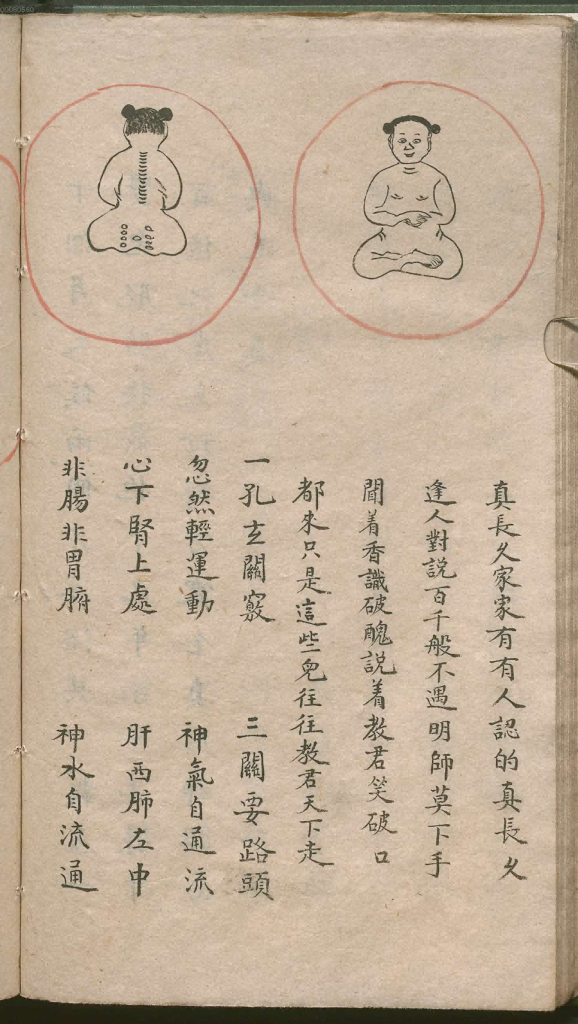 真長久家家有有人認的真長久
逢人對說百千般不遇明師莫下手
聞着香識破醜說着教君笑破口
都來只是這些兒往往教君天下走
一孔玄關竅 三關要路頭
忽然輕運動 神氣自通流
心下腎上處 肝西肺左中
非腸非胃腑 神水自流通